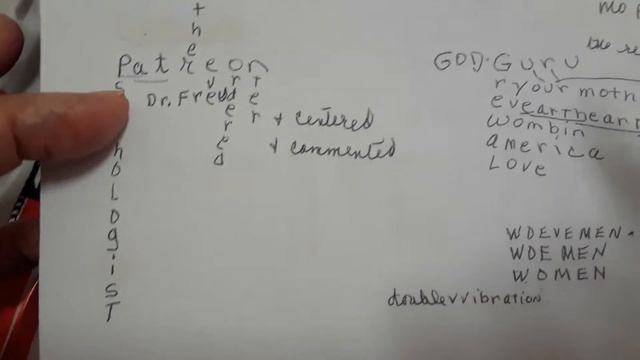 the
Patreon
Dr. Freud
+ centered
+ commented
hOLOgisT
GOD·Guru
r your moth
eveartheart
wombin
america
LOVE
WDEVEMEN
WDE MEN
WOMEN
doublevvibration